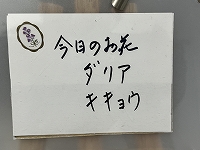 今日のお花
ダリア
キキョウ